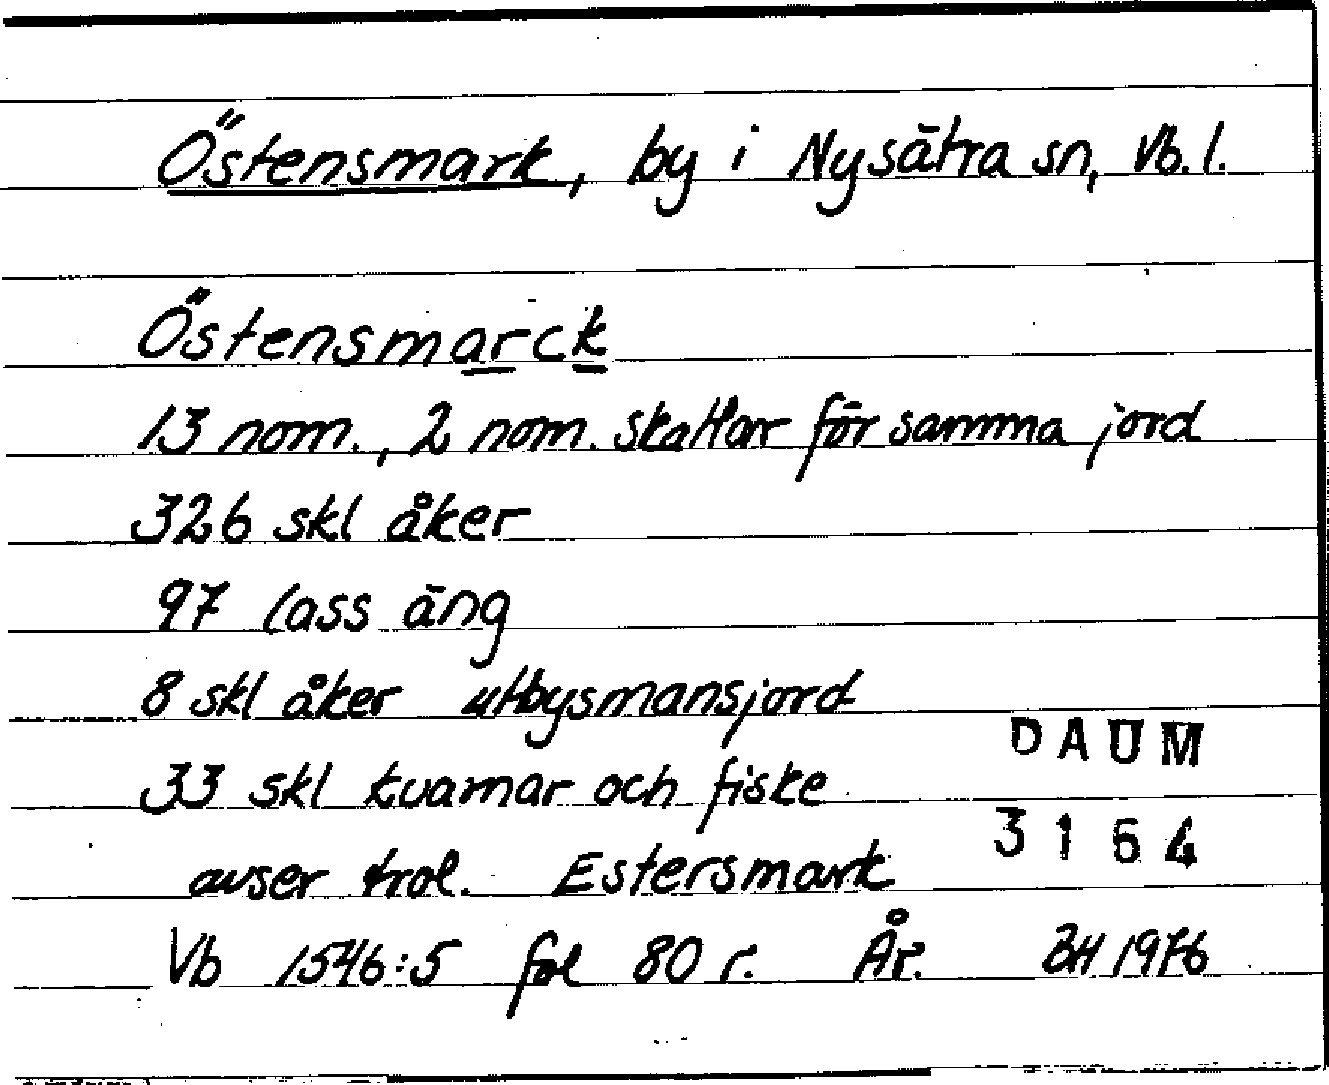 Östensmark, by i Nysätra sn, Vb. l.
Östensmarck
13 nom., 2 nom. skattar för samma jord
326 skl åker
97 lass äng
8 skl åker utbysmansjord
33 skl kvarnar och fiske
DAUM
3164
avser trol. Estersmark
Vb 1546:5 fol 80 r. År. BH 1976